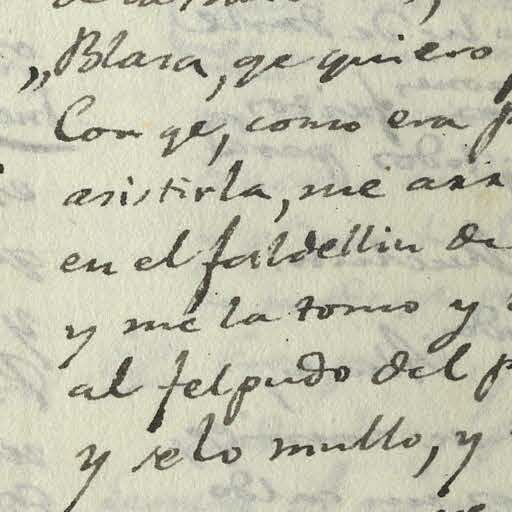 „Blasa, qe quiero
Con qe, como era
asistirla, me
en el faldellin de
y me la tomo y
al felpudo del
y selo mullo, y